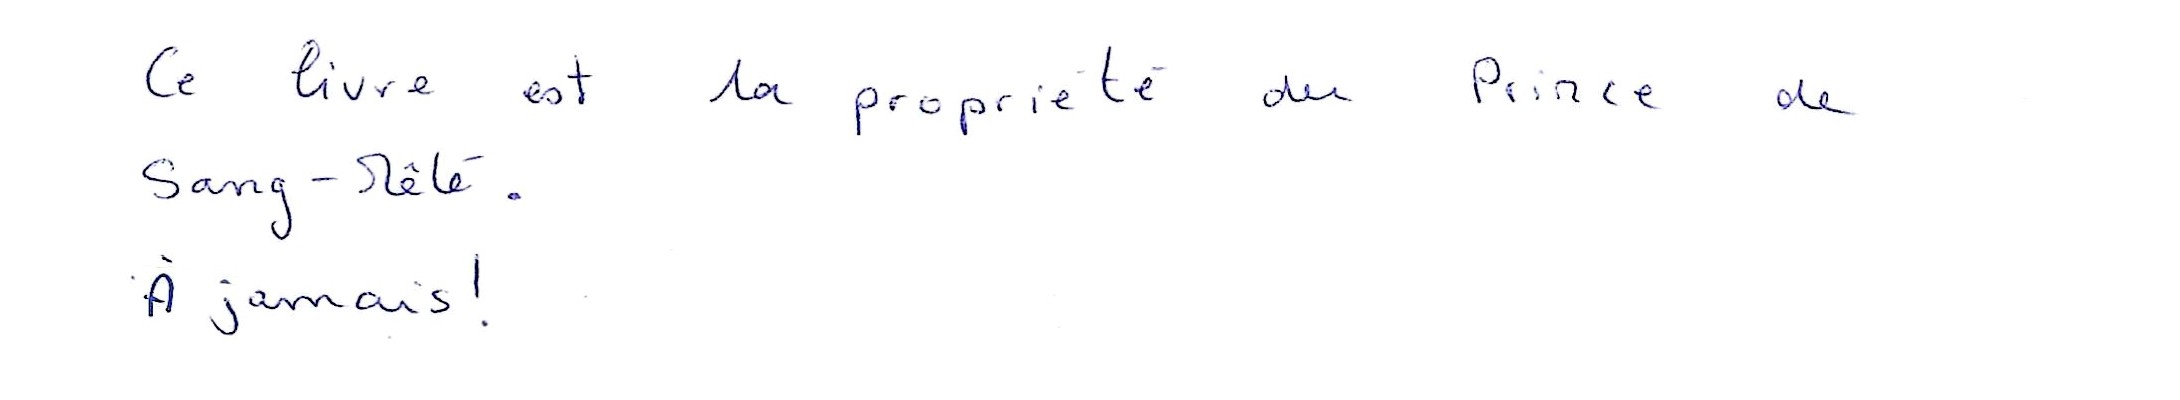 Ce livre est la propriété du Prince de
Sang-Mêlé.
À jamais!